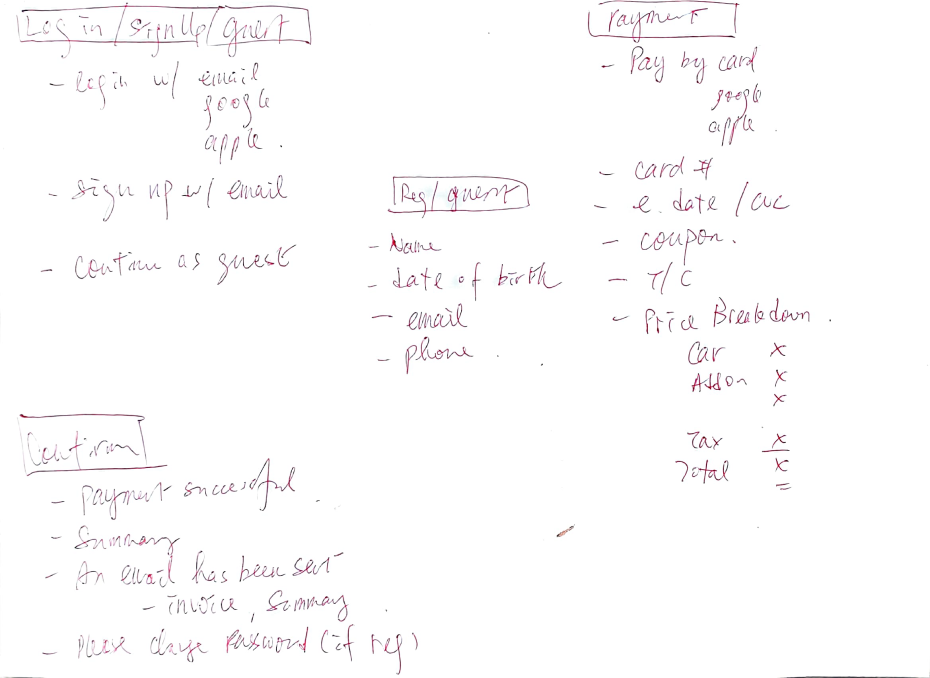 Log in/SignUp/guest
- login w/ email
google
apple.
- sign up w/ email
- continue as guest
Reg/guest
- Name
- date of birth
- email
- phone.
Payment
- Pay by card
google
apple.
- card #
- e. date / cvc
- coupon.
- T/C
- Price Breakdown.
Car x
Addon x
x
Tax x
Total x
Confirm
- payment successful.
- Summary
- An email has been sent
- invoice, Summary.
- Please change Password (if reg)